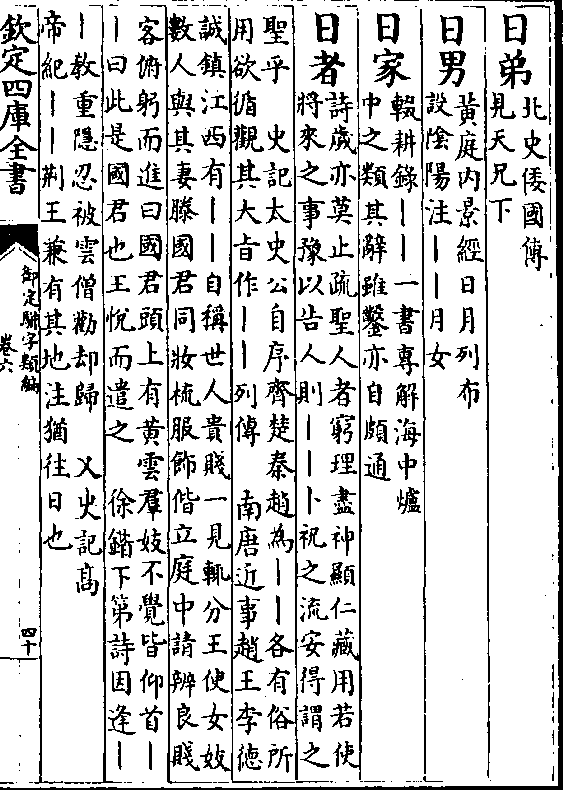 日弟
北史倭國傳
見天兄下
日男
黃庭内景經日月列布
設隂陽注丨丨月女
日家
輟耕錄丨丨一書專解海中爐
中之類其辭雖鑿亦自頗通
日者
詩歲亦莫止疏聖人者窮理盡神顯仁藏用若使
將來之事豫以告人則丨丨卜祝之流安得謂之
聖乎 史記太史公自序齊楚秦趙為丨丨各有俗所
用欲循觀其大旨作丨丨列傳 南唐近事趙王李德
誠鎮江西有丨丨自稱世人貴賤一見輒分王使女妓
數人與其妻滕國君同妝梳服飾偕立庭中請辨良賤
客俯躬而進曰國君頭上有黃雲羣妓不覺皆仰首丨
丨曰此是國君也王悅而遣之 徐鍇下第詩因逢丨
丨教重隱忍被雲僧勸却歸 又史記高
帝紀丨丨荆王兼有其地注猶往日也
欽定四庫全書
御定駢字類編
卷六
四十